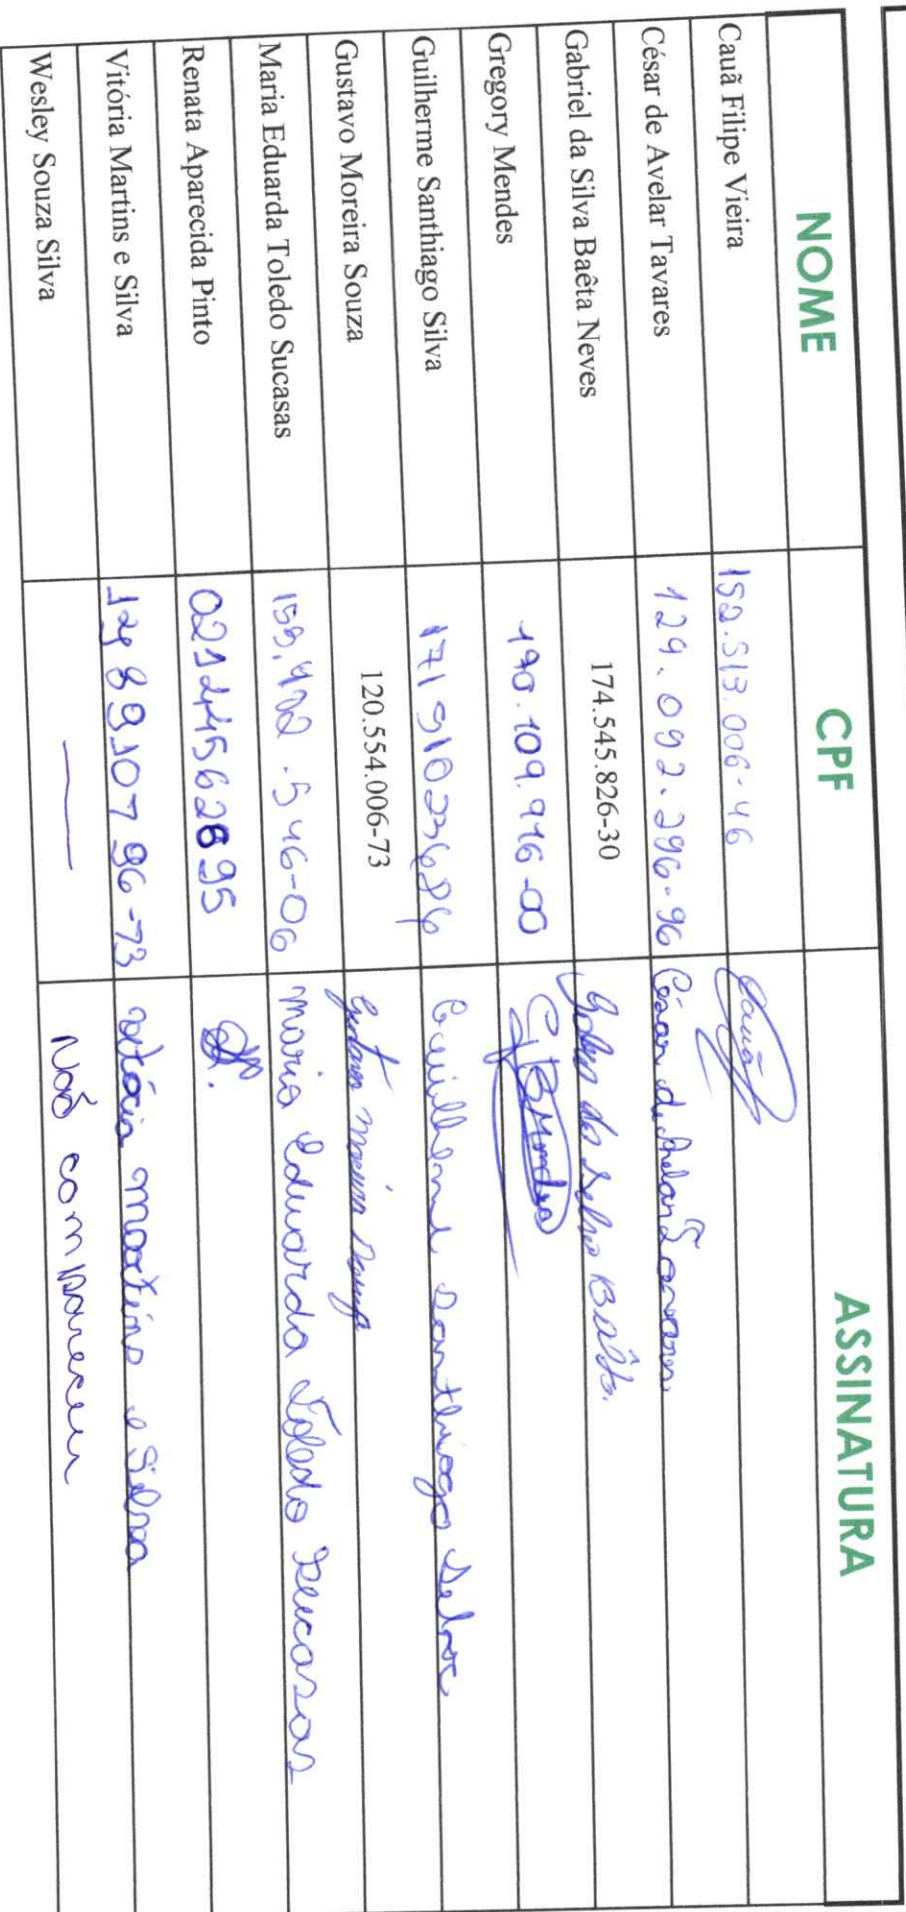 NOME CPF ASSINATURA
Cauã Filipe Vieira 152.513.006-46 Cauã
César de Avelar Tavares 129.092.296-96 César de Avelar Tavares
Gabriel da Silva Baêta Neves 174.545.826-30 Gabriel da Silva Baêta
Gregory Mendes 190.109.916-00 GBMendes
Guilherme Santhiago Silva Guilherme Santhiago Silva
Gustavo Moreira Souza 120.554.006-73 Gustavo Moreira Souza
Maria Eduarda Toledo Sucasas Maria Eduarda Toledo Sucasas
Renata Aparecida Pinto
Vitória Martins e Silva Vitória Martins e Silva
Wesley Souza Silva — Não compareceu